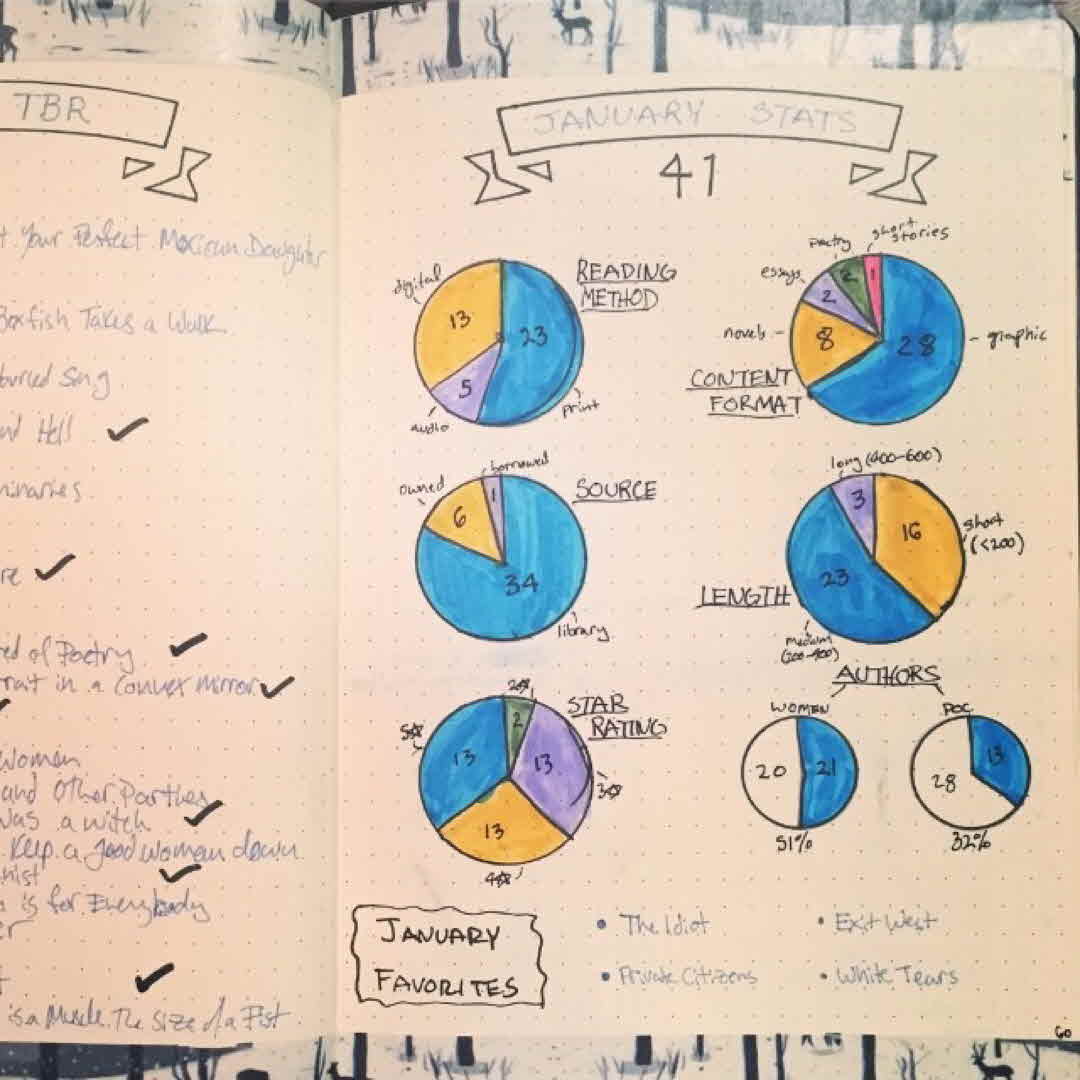 TBR
Your Perfect Mexican Daughter
Boxfish Takes a Walk
Hell
re
of Poetry
in a Convex Mirror
women
and Other Parties
was a witch
Keep a good woman down
nist
is for Everybody
er
t
is a Muscle The Size of a Fist
JANUARY STATS
41
READING
METHOD
digital
13
23
5
audio
print
CONTENT
FORMAT
poetry
short
stories
essays
2
2
1
novels
8
28
graphic
SOURCE
owned
borrowed
6
1
34
library
LENGTH
long (400-600)
3
16
short
(<200)
23
medium
(200-400)
STAR
RATING
2☆
5☆
2
13
13
3☆
13
4☆
AUTHORS
WOMEN
20
21
51%
POC
13
28
32%
JANUARY
FAVORITES
• The Idiot
• Exit West
• Private Citizens
• White Tears
60